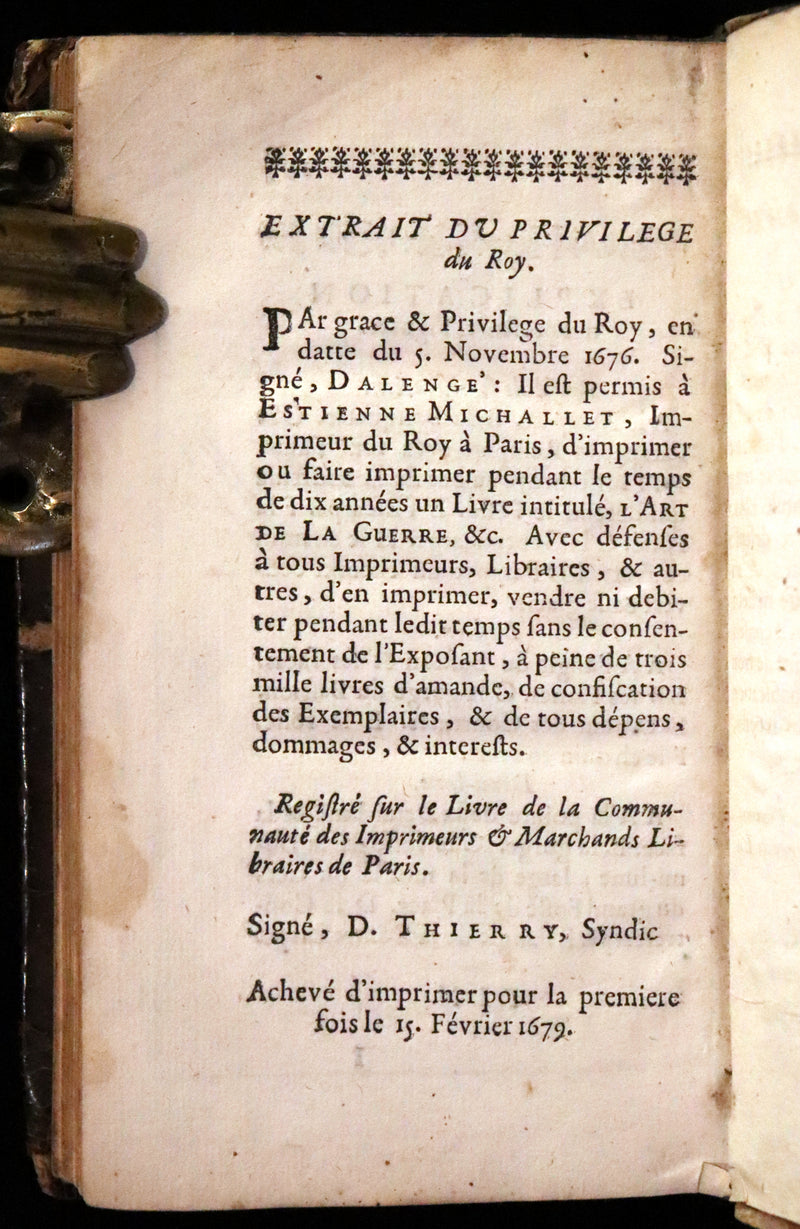 EXTRAIT DV PRIVILEGE
du Roy.
PAr grace & Privilege du Roy, en
datte du 5. Novembre 1676. Si-
gné, DALENGE' : Il eſt permis à
ESTIENNE MICHALLET, Im-
primeur du Roy à Paris, d'imprimer
ou faire imprimer pendant le temps
de dix années un Livre intitulé, L'ART
DE LA GUERRE, &c. Avec défenſes
à tous Imprimeurs, Libraires, & au-
tres, d'en imprimer, vendre ni debi-
ter pendant ledit temps ſans le conſen-
tement de l'Expoſant, à peine de trois
mille livres d'amande, de confiſcation
des Exemplaires, & de tous dépens,
dommages, & intereſts.
Regiſtré ſur le Livre de la Commu-
nauté des Imprimeurs & Marchands Li-
braires de Paris.
Signé, D. THIERRY, Syndic
Achevé d'imprimer pour la premiere
fois le 15. Février 1679.